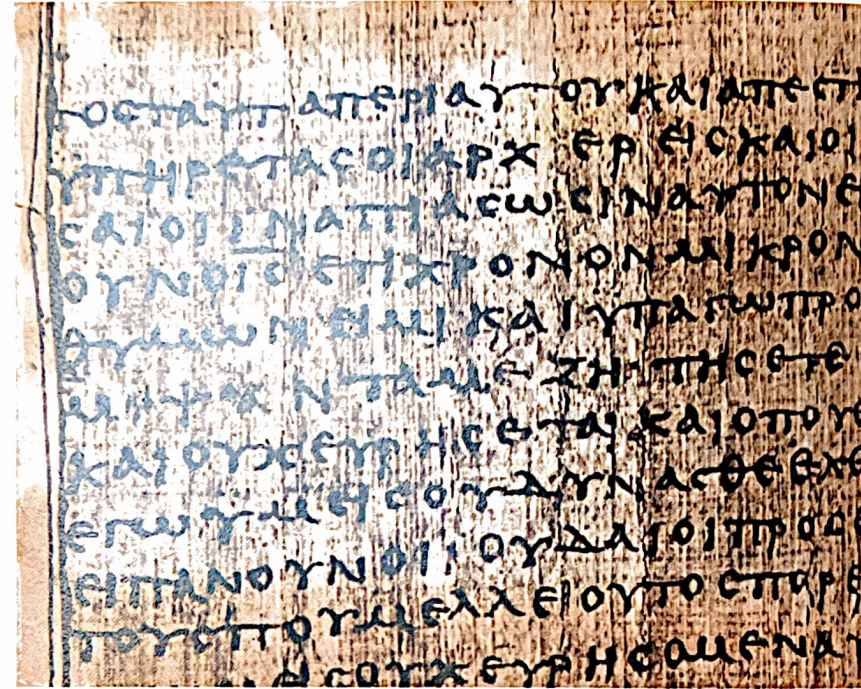 ΤΟϹΤΑΥΤΑΠΕΡΙΑΥΤΟΥΚΑΙΑΠΕϹΤ
ΥΠΗΡΕΤΑϹΟΙΑΡΧΕΡΕΙϹΚΑΙΟΙ
ϹΑΙΟΙΙΝΑΠΙΑϹΩϹΙΝΑΥΤΟΝΕ
ΟΥΝΟΙϹΕΤΙΧΡΟΝΟΝΜΙΚΡΟΝ
ΘΥΜΩΝΕΙΜΙΚΑΙΥΠΑΓΩΠΡΟ
ΜΨΑΝΤΑΜΕΖΗΤΗϹΕΤΕ
ΚΑΙΟΥΧΕΥΡΗϹΕΤΑΙΚΑΙΟΠΟΥ
ΕΓΩΥΜΕΙϹΟΥΔΥΝΑϹΘΕΕΛΘΕ
ΕΙΠΑΝΟΥΝΟΙΙΟΥΔΑΙΟΙΠΡΟϹ
ΤΟΥϹΠΟΥΜΕΛΛΕΙΟΥΤΟϹΠΟΡΕ
ΕΙϹΟΥΧΕΥΡΗϹΟΜΕΝΑΥ